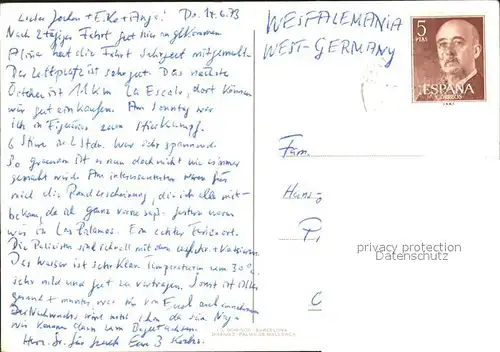 Liebe Jochen + Elke + Anja! Do. 14.6.73
Nach 2 tägiger Fahrt gut hier angekommen
hat die Fahrt sehr gut mitgemacht.
Der Zeltplatz ist sehr gut. Das nächste
Örtchen ist 11 km La Escala, dort können
wir gut einkaufen. Am Sonntag war
ich in Figueras zum Stierkampf.
6 Stiere in 2 Stdn. War sehr spannend.
So grausam ist es nun doch nicht wie es immer
gemacht wird. Am interessantesten waren für
mich die Randerscheinung, die ich alle mit-
bekam, da ich ganz vorne saß. Gestern waren
wir in Las Palamos. Ein echter Ferienort.
Die Polizisten sind schnell mit dem
Das Wasser ist sehr klar. Temperaturen um 30°
sehr mild und gut zu vertragen. Sonst ist alles
gesund + munter, was wir von Euch auch annehmen
Der Nachwuchs
wir können dann zum
Herzl. Gr. für Euch Eure 3
WESTALEMANIA
WEST-GERMANY
5
PTAS
ESPAÑA
CORREOS
Fam.
Hans-J
P
C
privacy protection
Datenschutz
BARCELONA
PALMA DE MALLORCA